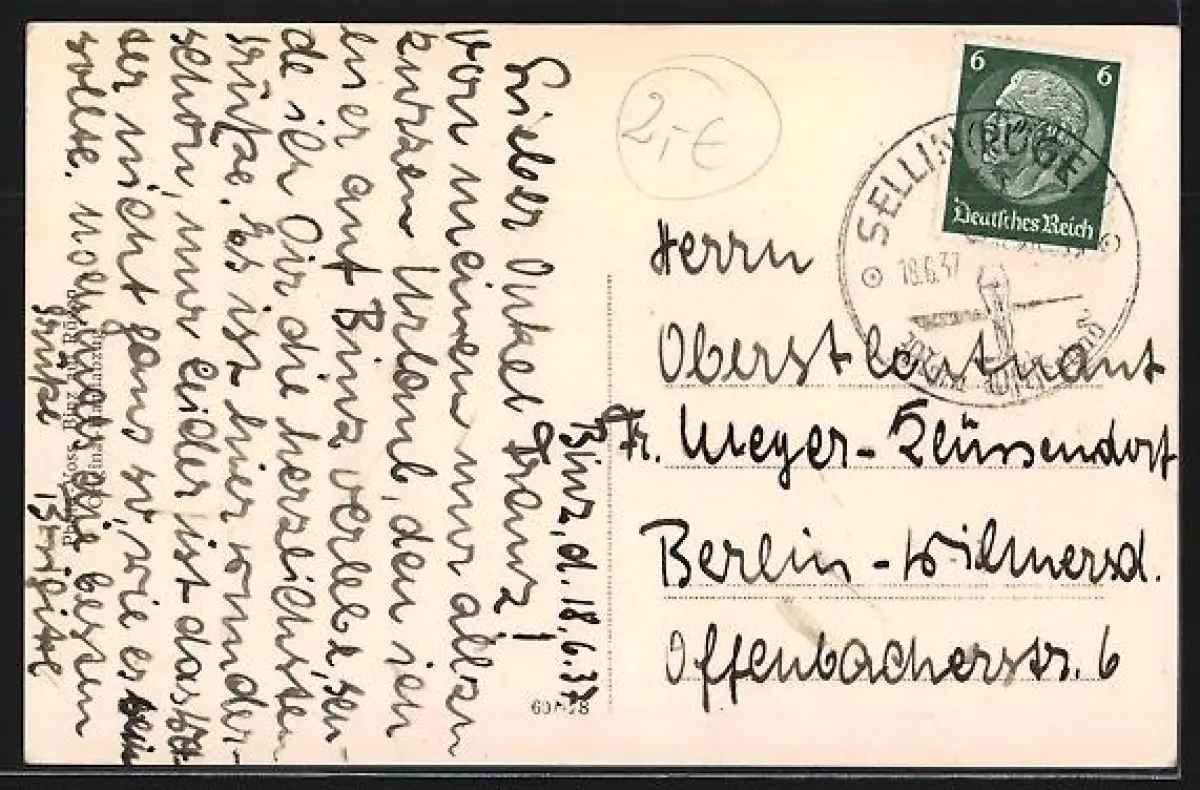 Binz, d. 18.6.37
Lieber Onkel Franz!
Von meinem nur allzu
kurzen Urlaub, den ich
hier auf Binz verlebe, sen-
de ich Dir die herzlichsten
Grüße. Es ist hier wunder-
schön, nur leider ist das Wet-
ter nicht ganz so, wie es sein
sollte. Nochmals die besten
Grüße Brigitte
2,-€
6 6
Deutsches Reich
SELLIN (RÜGEN)
18.6.37
Herrn
Oberstleutnant
Fr. Meyer-Klüssendorf
Berlin-Wilmersd.
Offenbacherstr. 6